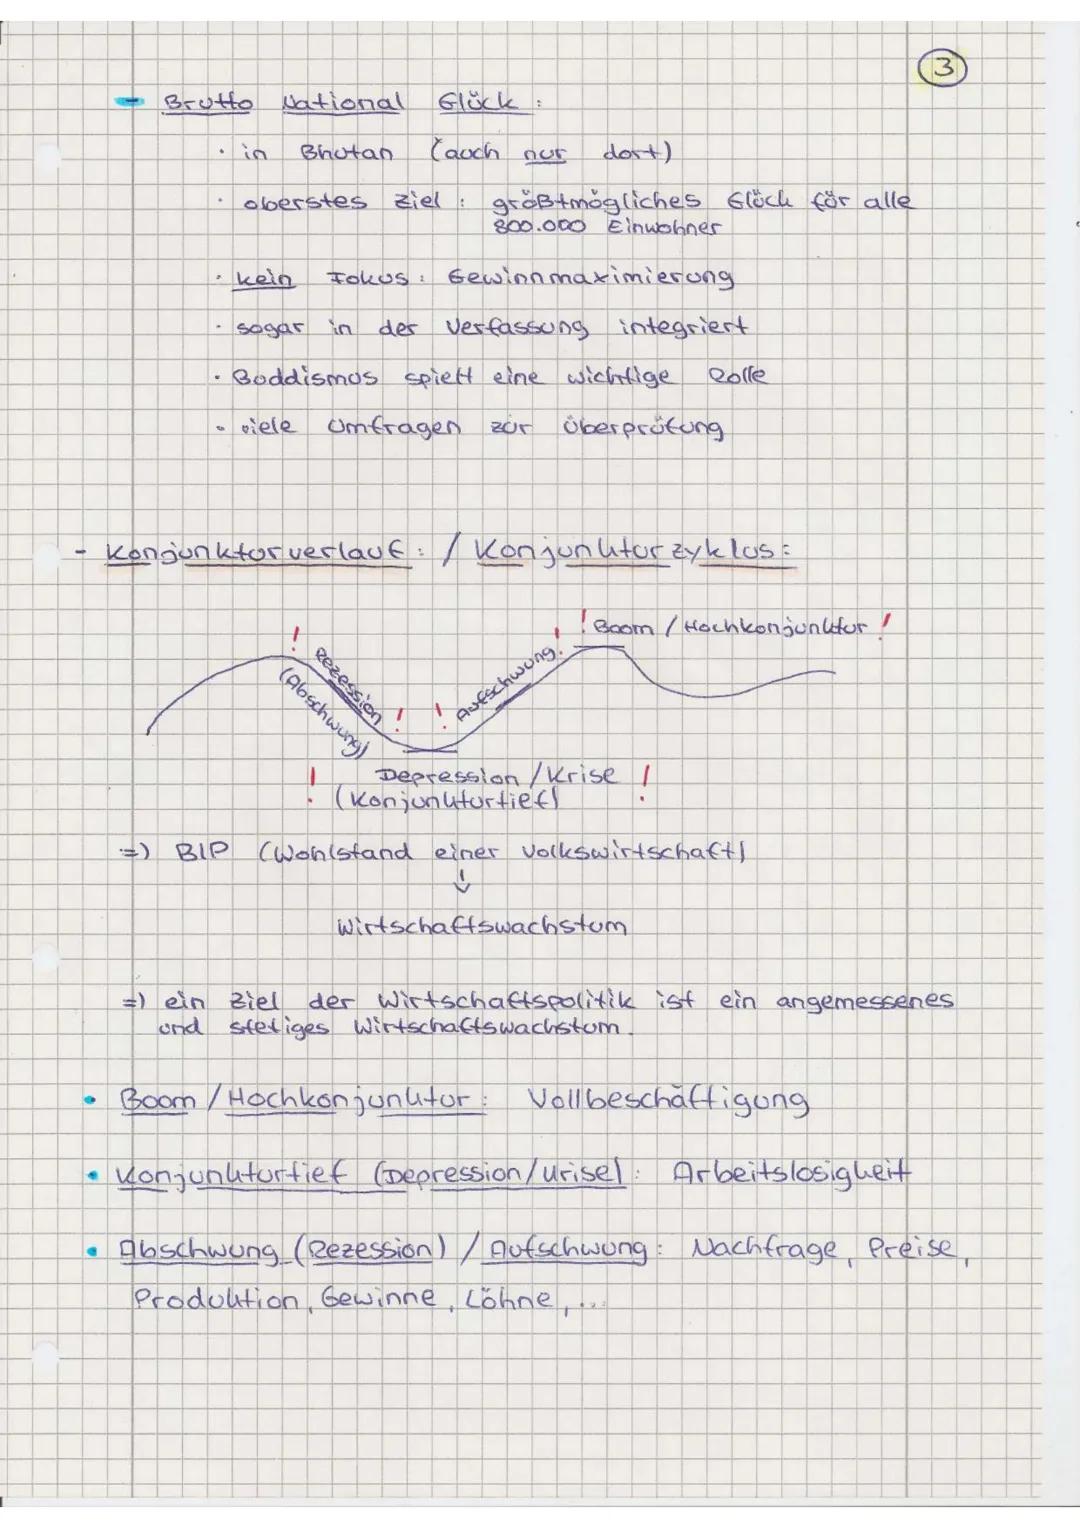 3
- Brutto National Glück :
· in Bhutan (auch nur dort)
· oberstes Ziel : größtmögliches Glück für alle
800.000 Einwohner
· kein Fokus : Gewinnmaximierung
· sogar in der Verfassung integriert
· Buddismus spielt eine wichtige Rolle
· viele Umfragen zur Überprüfung
- Konjunkturverlauf : / Konjunkturzyklus :
! Boom / Hochkonjunktur !
! Rezession !
(Abschwung)
! Aufschwung !
! Depression / Krise !
(Konjunkturtief)
=) BIP (Wohlstand einer Volkswirtschaft)
↓
Wirtschaftswachstum
=) ein Ziel der Wirtschaftspolitik ist ein angemessenes
und stetiges Wirtschaftswachstum.
• Boom / Hochkonjunktur : Vollbeschäftigung
• Konjunkturtief (Depression/Krise) : Arbeitslosigkeit
• Abschwung (Rezession) / Aufschwung : Nachfrage, Preise,
Produktion, Gewinne, Löhne, ...